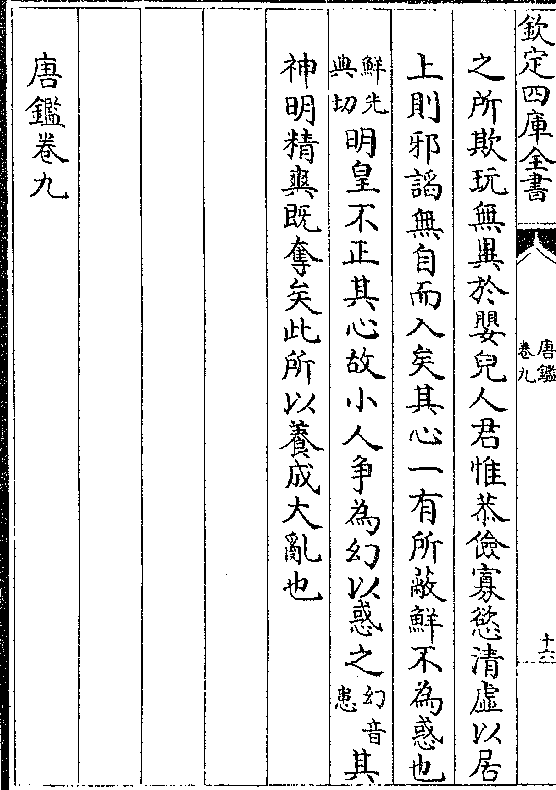 欽定四庫全書
唐鑑
卷九
十六
之所欺玩無異於嬰兒人君惟恭儉寡慾清虛以居
上則邪謟無自而入矣其心一有所蔽鮮不為惑也
鮮先
典切
明皇不正其心故小人争為幻以惑之
幻音
患
其
神明精爽既奪矣此所以養成大亂也
唐鑑卷九